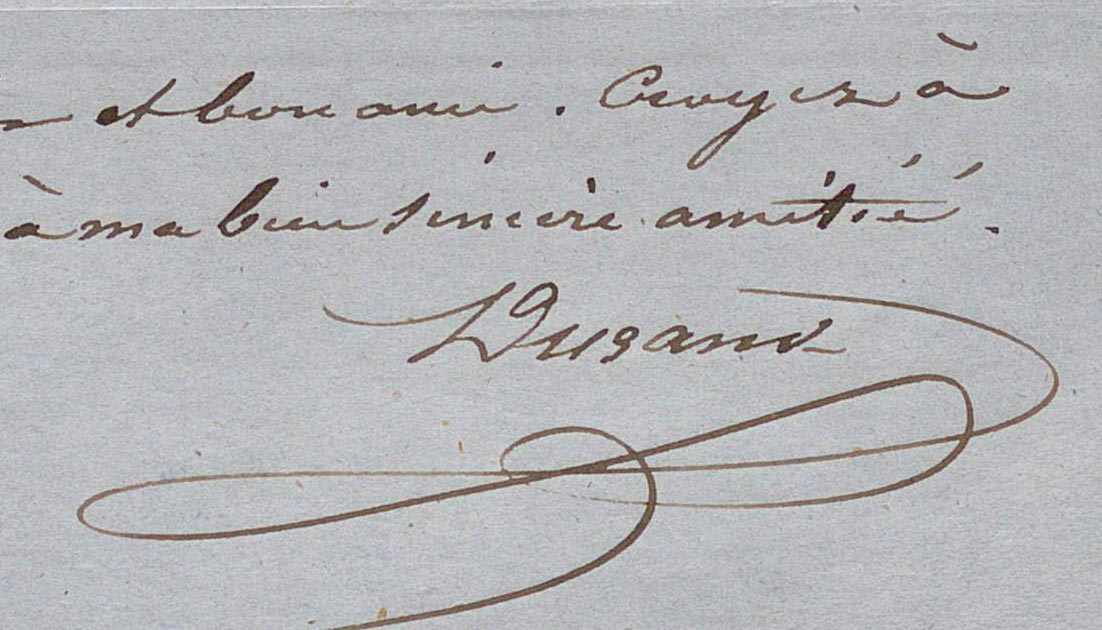 et bon ami. Croyez à
à ma bien sincère amitié.
Durand